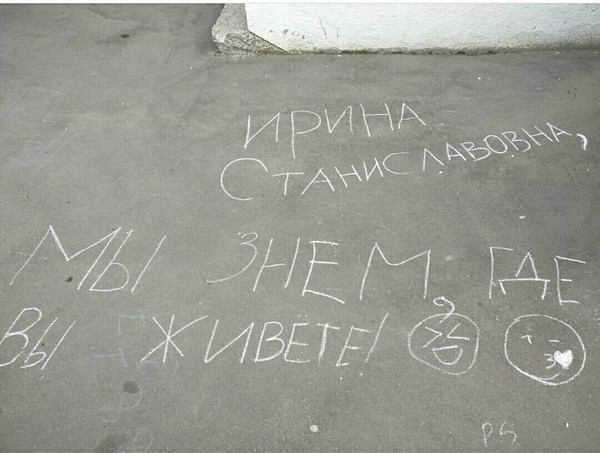 ИРИНА
СТАНИСЛАВОВНА,
МЫ ЗНЕМ, ГДЕ
ВЫ ЖИВЕТЕ!
PS